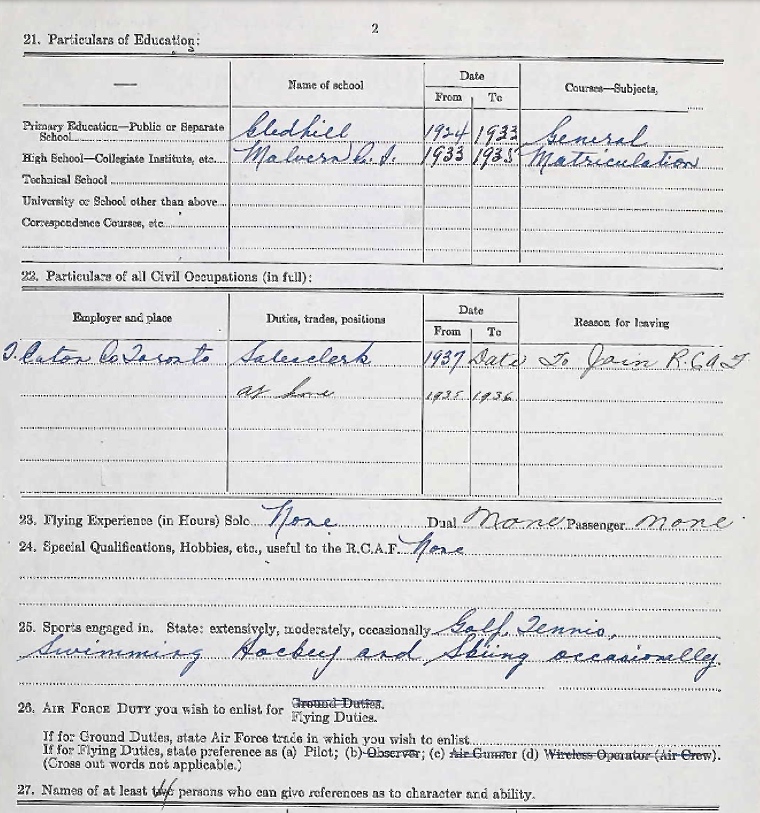 2
21. Particulars of Education:
— Name of school Date Courses—Subjects,
From To
Primary Education—Public or Separate School Gledhill 1924 1933 General
High School—Collegiate Institute, etc. Malvern C. I. 1933 1935 Matriculation
Technical School
University or School other than above
Correspondence Courses, etc
22. Particulars of all Civil Occupations (in full):
Employer and place Duties, trades, positions Date Reason for leaving
From To
T. Eaton Co Toronto Salesclerk 1937 Date To Join R.C.A.F
at home 1935 1936
23. Flying Experience (in Hours) Solo None Dual None Passenger None
24. Special Qualifications, Hobbies, etc., useful to the R.C.A.F. None
25. Sports engaged in. State: extensively, moderately, occasionally Golf, Tennis,
Swimming Hockey and Skiing occasionally
26. AIR FORCE DUTY you wish to enlist for Ground Duties.
Flying Duties.
If for Ground Duties, state Air Force trade in which you wish to enlist
If for Flying Duties, state preference as (a) Pilot; (b) Observer; (c) Air Gunner (d) Wireless Operator (Air Crew).
(Cross out words not applicable.)
27. Names of at least two 4 persons who can give references as to character and ability.